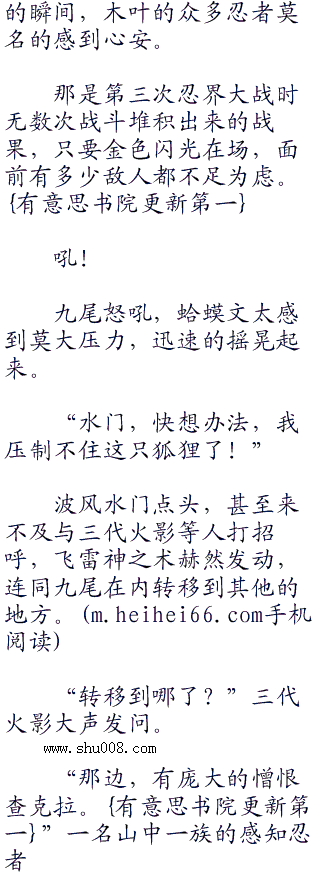 的瞬间，木叶的众多忍者莫
名的感到心安。
那是第三次忍界大战时
无数次战斗堆积出来的战
果，只要金色闪光在场，面
前有多少敌人都不足为虑。
{有意思书院更新第一}
吼！
九尾怒吼，蛤蟆文太感
到莫大压力，迅速的摇晃起
来。
“水门，快想办法，我
压制不住这只狐狸了！”
波风水门点头，甚至来
不及与三代火影等人打招
呼，飞雷神之术赫然发动，
连同九尾在内转移到其他的
地方。(m.heihei66.com手机
阅读)
“转移到哪了？”三代
火影大声发问。
www.shu008.com
“那边，有庞大的憎恨
查克拉。{有意思书院更新第
一}”一名山中一族的感知忍
者